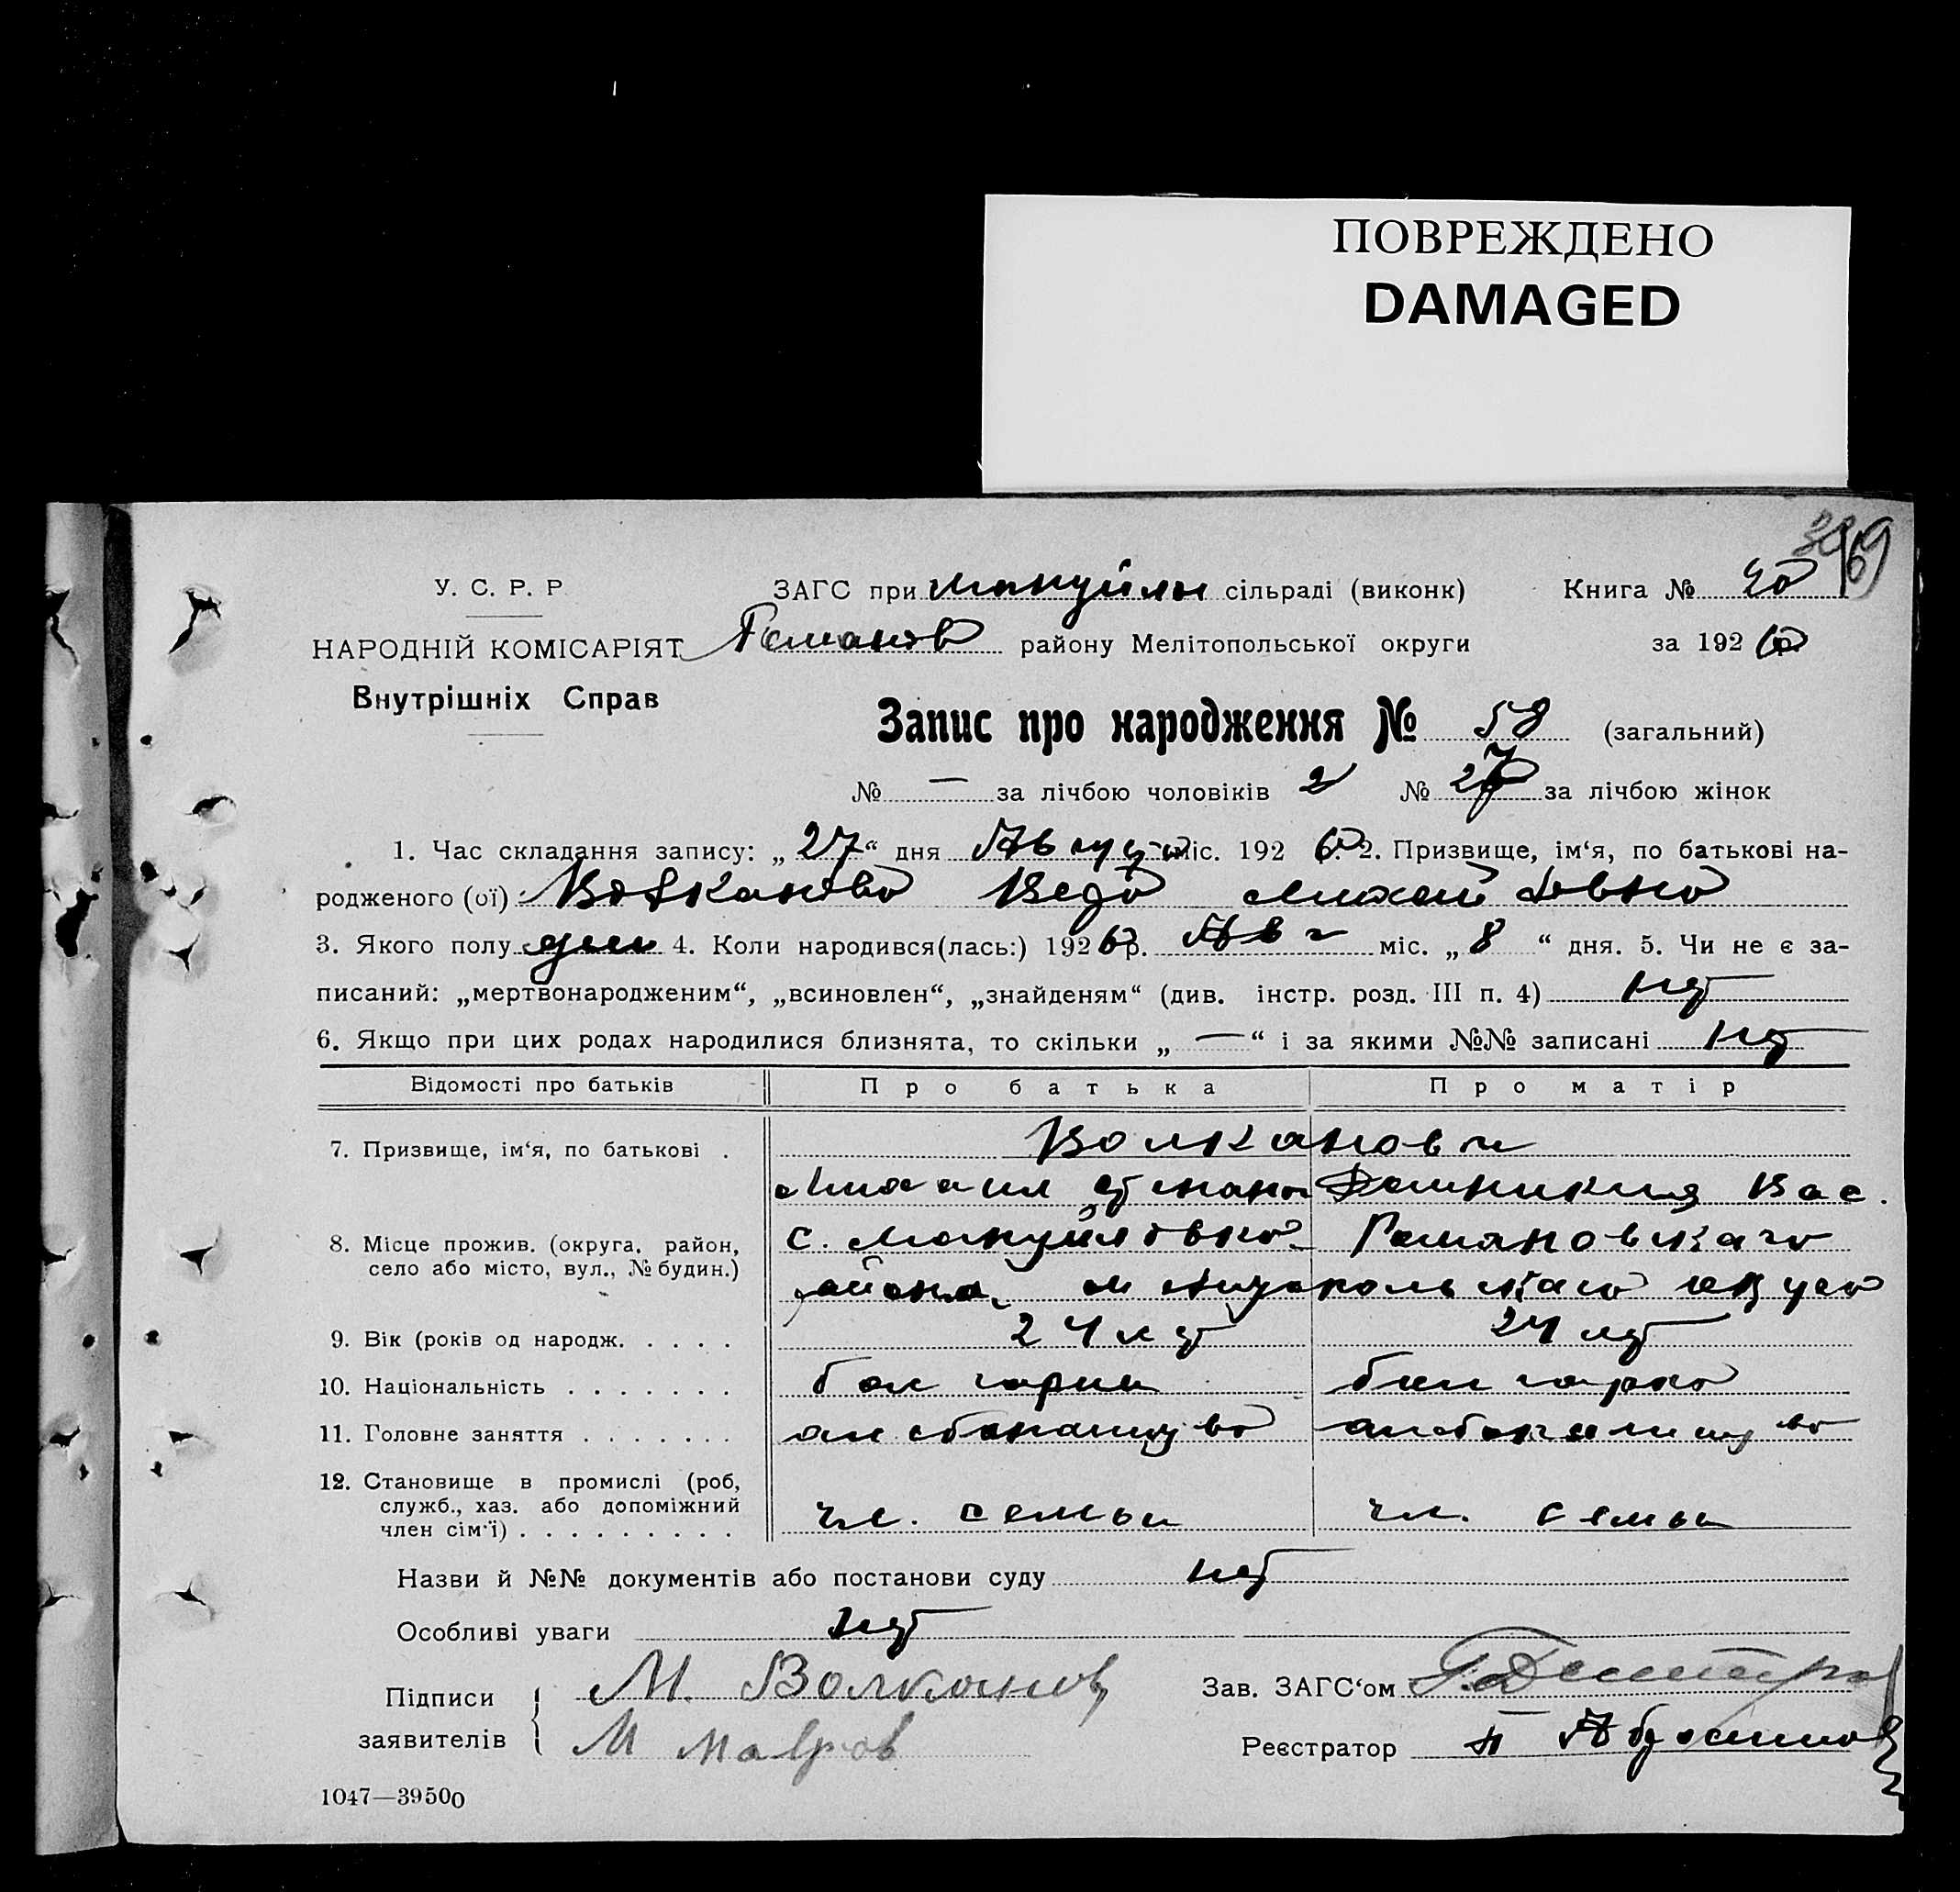 ПОВРЕЖДЕНО
DAMAGED
69
У. С. Р. Р
ЗАГС при Мануйлы сільраді (виконк)
Книга №
НАРОДНІЙ КОМІСАРІЯТ
Романов району Мелітопольської округи
за 1926
Внутрішніх Справ
Запис про народження № 58 (загальний)
№ — за лічбою чоловіків № 27 за лічбою жінок
1. Час складання запису: „27“ дня Августа міс. 1926 2. Призвище, ім‘я, по батькові на-
родженого (ої) Волканова Ведо Михайловно
3. Якого полу жен 4. Коли народився(лась:) 1926 р. Авг міс. „8“ дня. 5. Чи не є за-
писаний: „мертвонародженим“, „всиновлен“, „знайденям“ (див. інстр. розд. III п. 4) нет
6. Якщо при цих родах народилися близнята, то скільки „—“ і за якими №№ записані нет
Відомості про батьків Про батька Про матір
7. Призвище, ім‘я, по батькові . Волкановы
Михаил Степано Домникия Вас.
8. Місце прожив. (округа, район, с. Мануйловка Романовскаго
село або місто, вул., № будин.) района, Мелитопольскаго округа
9. Вік (років од народж. . . . . 24 лет 24 лет
10. Національність . . . . . . . болгарин болгарка
11. Головне заняття . . . . . . .
12. Становище в промислі (роб,
служб., хаз. або допоміжний чл. семьи чл. семьи
член сім‘ї) . . . . . . . . .
Назви й №№ документів або постанови суду нет
Особливі уваги нет
Підписи М. Волканов Зав. ЗАГС‘ом
заявителів М Мавров Реєстратор
1047—39500